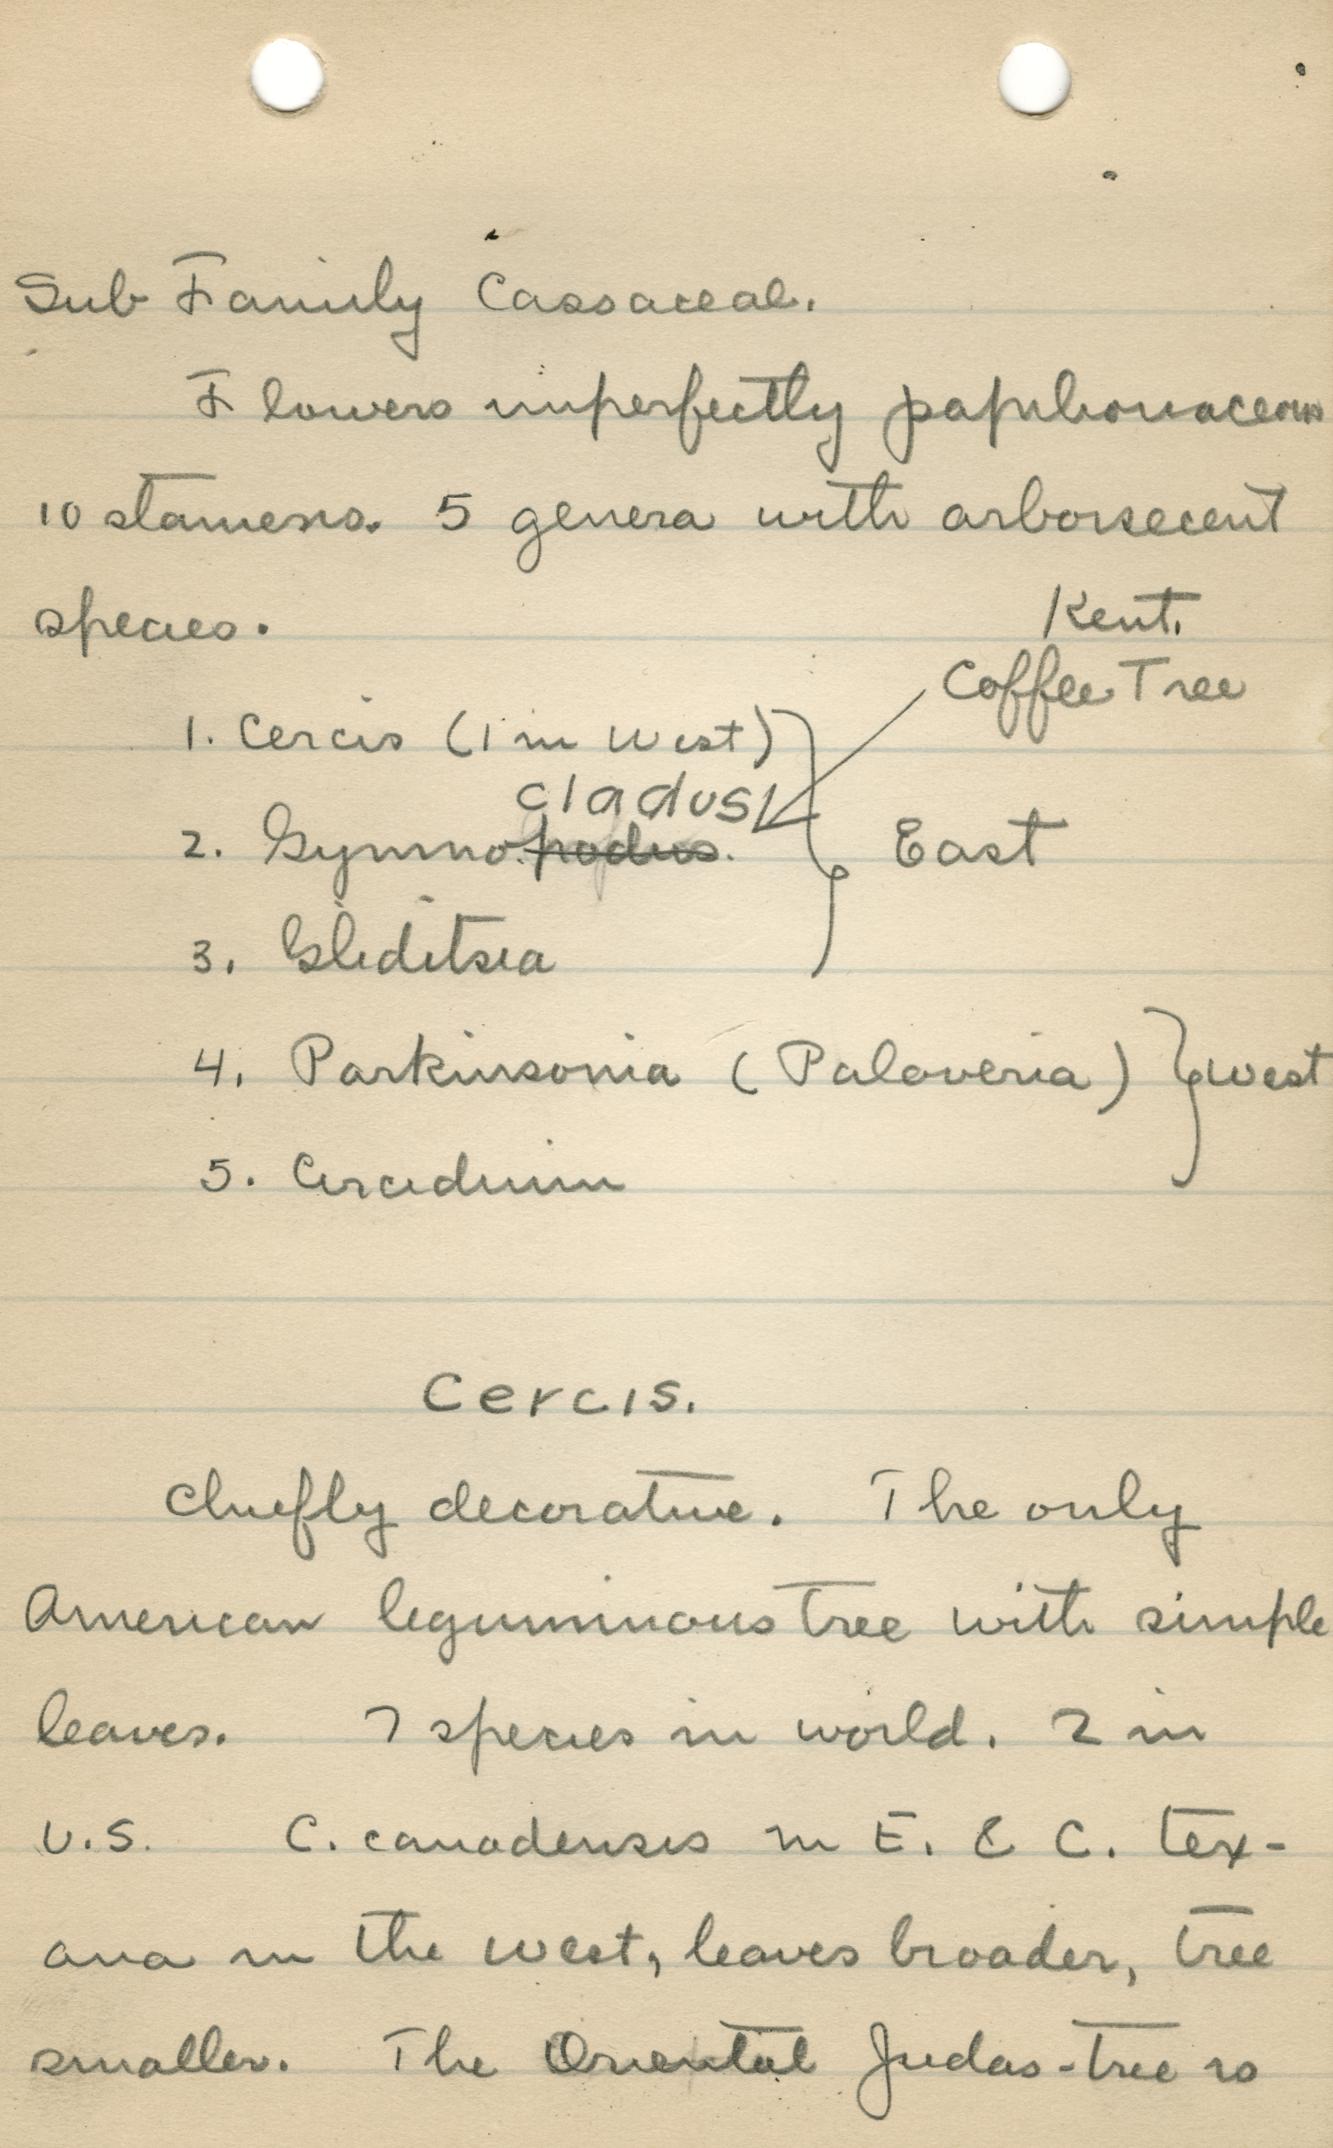 Sub Family Cassaceae.
Flowers imperfectly papilionaceous
10 stamens. 5 genera with arborsecent
species.
Kent.
Coffee Tree
1. Cercis (1 in West)
cladus
2. Gymnopodus.
East
3. Gleditsia
4. Parkinsonia (Paloveria) West
5. Cercidium
Cercis.
Chiefly decorative. The only
American leguminous tree with simple
leaves. 7 species in world. 2 in
U.S. C. canadensis in E. & C. tex-
ana in the west, leaves broader, tree
smaller. The Oriental Judas-tree is